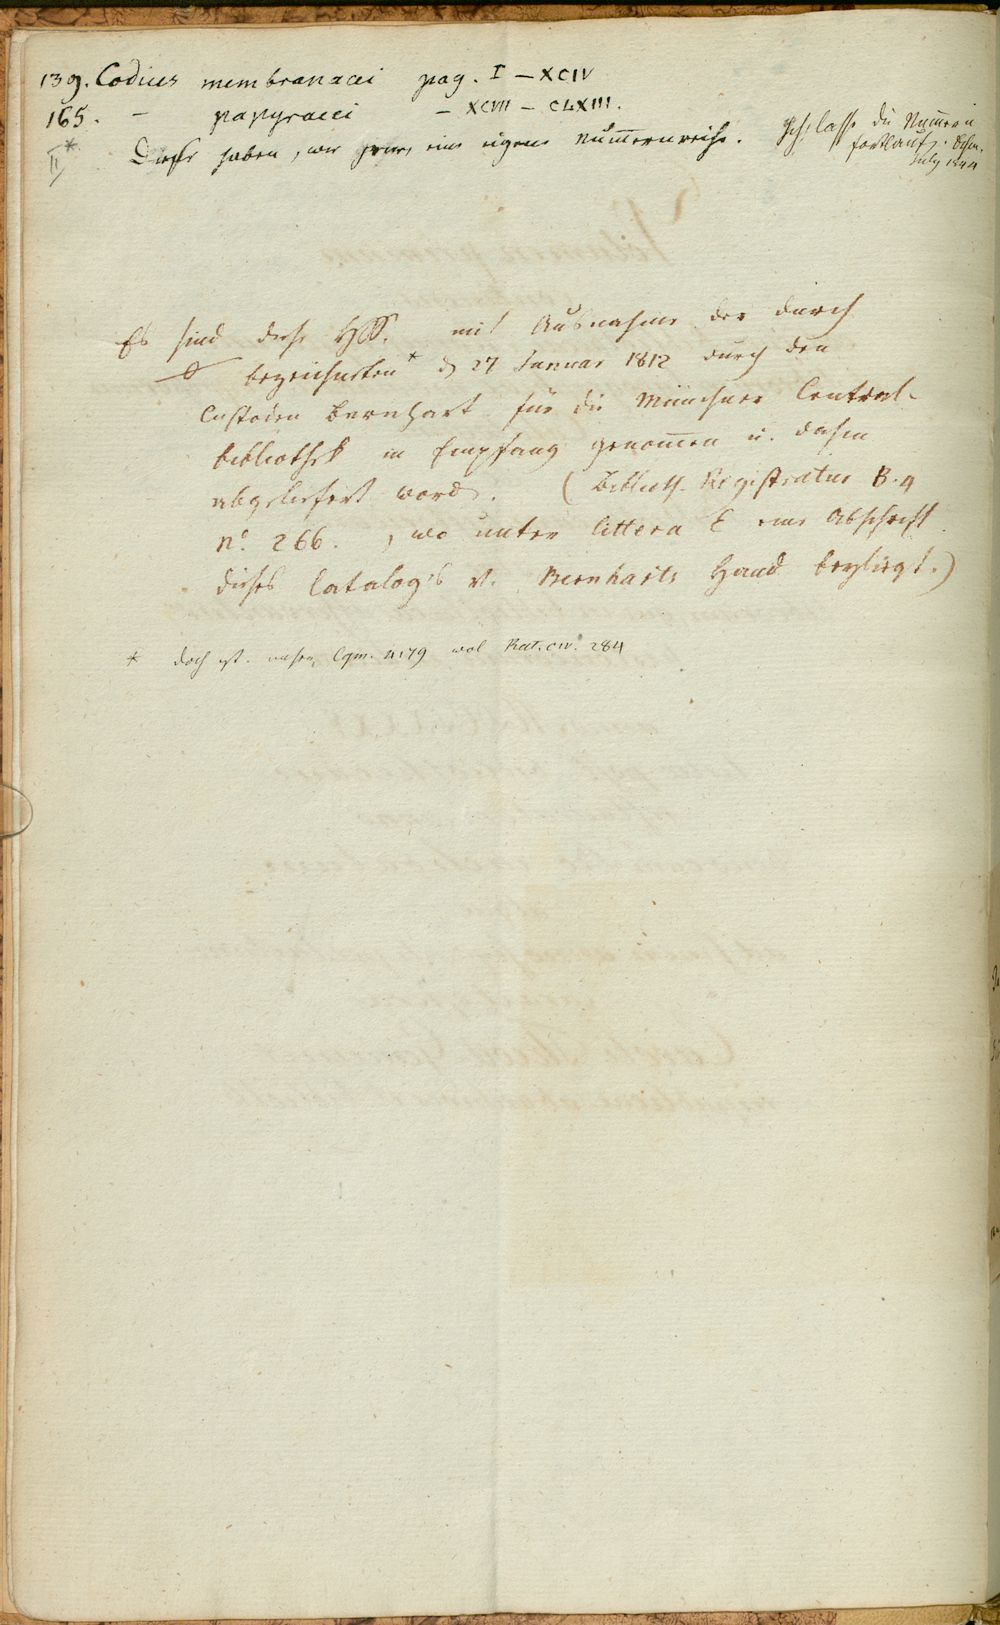 139. Codices membranacei pag. I – XCIV
165. – papyracei – XCVII – CLXIII.
II* Diese haben, wie jene, eine eigene Nummernreihe. Ich lasse die Numern
fortlauf. Schm.
July 1844
Es sind diese HSS. mit Ausnahme der durch
bezeichneten* d. 27 Januar 1812 durch den
Custoden Bernhart für die Münchner Central-
bibliothek in Empfang genommen u. dahin
abgeliefert word. (Biblioth. Registratur B. 4
n.º 266. , wo unter littera E eine Abschrift
dieses Catalog's v. Bernharts Hand beyliegt.)
* doch ist unser Cgm. 4179 wol Rat. civ. 284